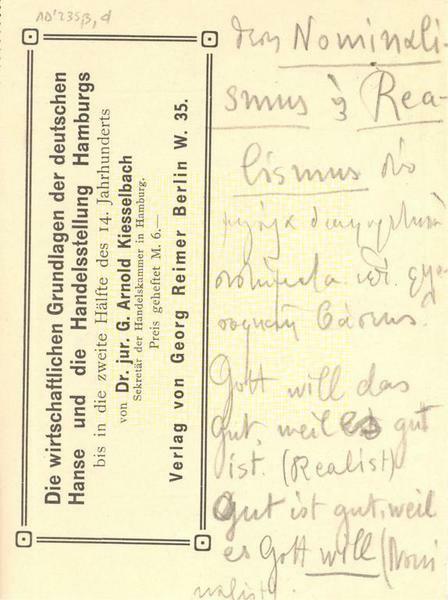 Die wirtschaftlichen Grundlagen der deutschen
Hanse und die Handelsstellung Hamburgs
bis in die zweite Hälfte des 14. Jahrhunderts
von Dr. jur. G. Arnold Kiesselbach
Sekretär der Handelskammer in Hamburg.
Preis geheftet M. 6.—
Verlag von Georg Reimer Berlin W. 35.
Nominali-
smus Rea-
lismus
Gott will das
gut, weil es gut
ist. (Realist)
Gut ist gut, weil
es Gott will (Nomi
nalist).